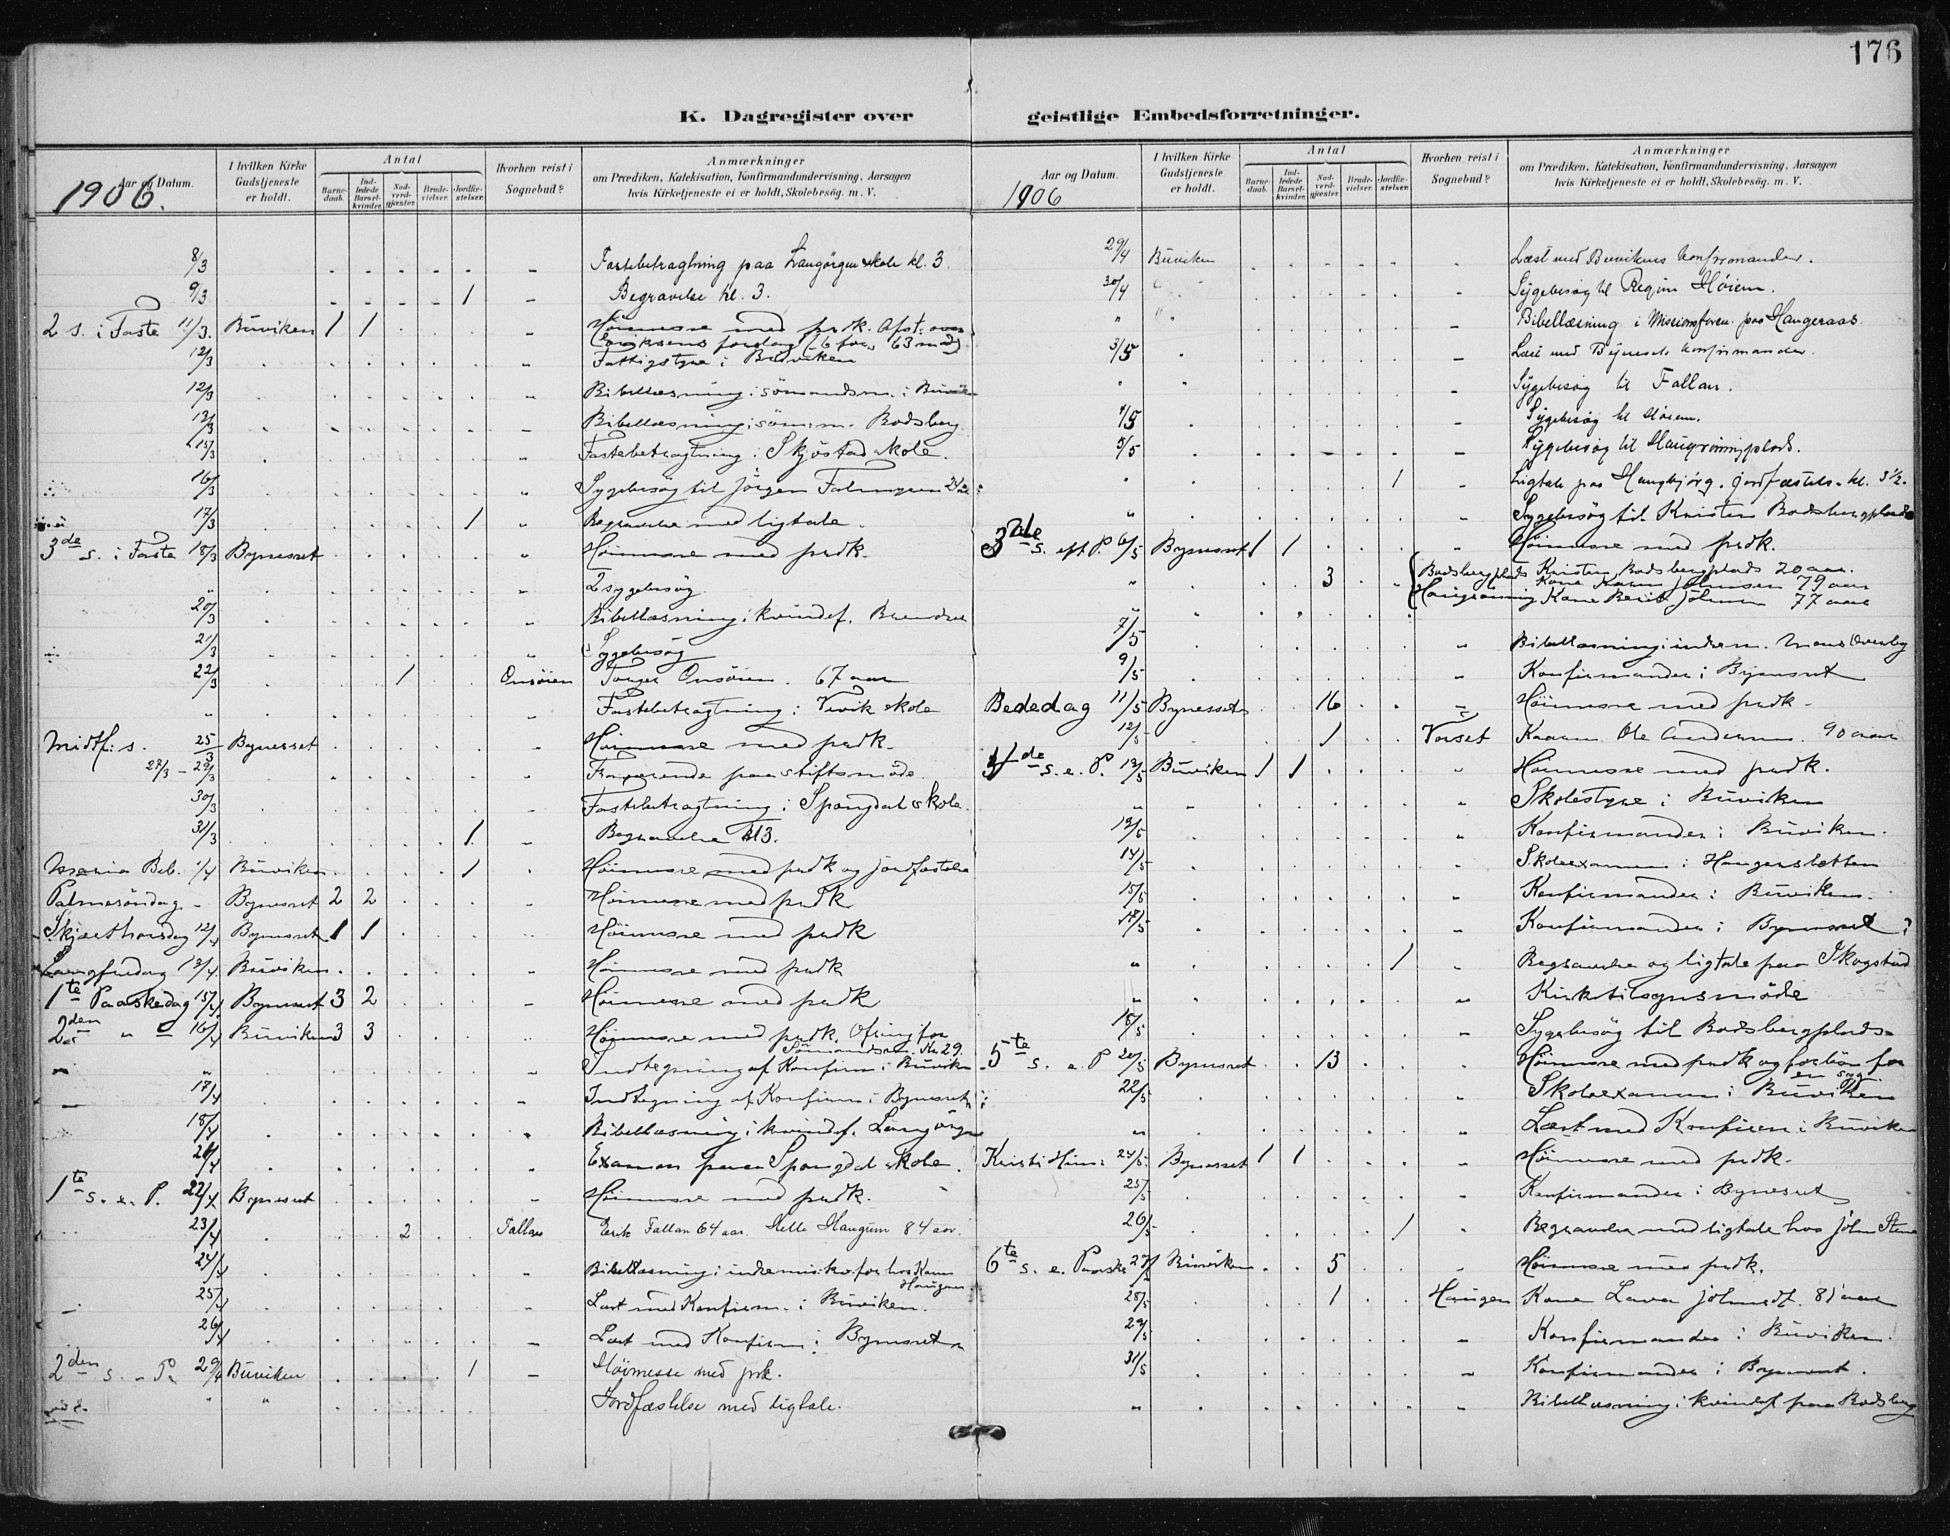 176
K. Dagregister over geistlige Embedsforretninger.
Aar og Datum.
1906.
I hvilken Kirke Gudstjeneste er holdt.
Antal
Barnedaab.
Indledede Barselkvinder.
Nadverdgjæster.
Brudevielser.
Jordfæstelser.
Hvorhen reist i Sognebud?
Anmærkninger
om Prædiken, Katekisation, Konfirmandundervisning, Aarsagen
hvis Kirketjeneste ei er holdt, Skolebesøg. m. V.
8/3 Fastebetragtning paa Langörgen skole kl. 3.
9/3 1 Begravelse kl. 3.
2 s. i Faste 11/3. Buviken 1 1 Höimesse med prdk. Afst. over
forslag (6 for, 63 mod)
12/3 Fattigstyre i Buviken
12/3 Bibellæsning i sömandsm. i Buviken
13/3 Bibellæsning i söm. m. Bodsberg
15/3 Fastebetragtning i Skjöstad skole.
16/3 Sygebesög til Jörgen
17/3 1 Begravelse med ligtale.
3de s. i Faste 18/3 Bynesset Höimesse med prdk.
" 2 sygebesög
20/3 Bibellæsning i kvindef.
21/3 Sygebesög
22/3 1 Onsöien Onsöien. 67 aar
" Fastebetragtning i Vivik skole
Midtf. s. 25/3 Bynesset Höimesse med prdk.
27/3 - 29/3 Fraværende paa stiftsmöde
30/3 Fastebetragtning i Spongdal skole.
31/3 1 Begravelse kl 3.
Maria Beb. 1/4 Buviken 1 Höimesse med prdk og jordfæstelse
Palmesöndag - Bynesset 2 2 Höimesse med prdk
Skjærthorsdag 12/4 Bynesset 1 1 Höimesse med prdk
Langfredag 13/4 Buviken Höimesse med prdk
1te Paaskedag 15/4 Bynesset 3 2 Höimesse med prdk
2den " 16/4 Buviken 3 3 Höimesse med prdk. Ofring for
Sömandsm. Kr 29.
" Indtegning af Konfirm. i Buviken
17/4 Indtegning af Konfirm. i Bynesset
18/4 Bibellæsning i kvindef. Langörgen
20/4 Examen paa Spongdal skole.
1te s. e. P. 22/4 Bynesset Höimesse med prdk.
23/4 2 Fallan Erik Fallan 64 aar. Helle Haugum 84 aar.
24/4 Bibellæsning i indremisk.for. hos Karen
Haugen
25/4 Læst med Konfirm. i Buviken.
26/4 Læst med Konfirm. i Bynesset
2den s. e. P. 29/4 Buviken 1 Höimesse med prk.
" " Jordfæstelse med ligtale.
Aar og Datum.
1906
I hvilken Kirke Gudstjeneste er holdt.
Antal
Barnedaab.
Indledede Barselkvinder.
Nadverdgjæster.
Brudevielser.
Jordfæstelser.
Hvorhen reist i Sognebud?
Anmærkninger
om Prædiken, Katekisation, Konfirmandundervisning, Aarsagen
hvis Kirketjeneste ei er holdt, Skolebesøg. m. V.
29/4 Buviken Læst med Buvikens konfirmander.
30/4 " Sygebesøg til Høiem.
" " Bibellæsning i Missionsforen. paa Haugeraas
3/5 Læst med Bynesets konfirmander.
" " Sygebesøg til Fallan.
4/5 Sygebesøg til Høiem.
5/5 Sygebesøg til
" 1 Ligtale paa Haugbjørg. Jordfæstels. kl. 3½.
" Sygebesög til Kristen Bodsbergplads
3de s. eft P. 6/5 Bynesset 1 1 Höimesse med prdk.
" 3 Bodsbergplads Kristen Bodsbergplads 20 aar.
Kone Karen Johnsen 79 aar
Haugrönning Kone Berit Johnsen 77 aar
7/5 Bibellæsning i indrem. Mons Overby
9/5 Konfirmander i Bynesset
Bededag 11/5 Bynesset 16 Höimesse med prdk.
12/5 1 Vorset Kaarm. Ole Andersen. 90 aar
4de s. e. P. 13/5 Buviken 1 1 Höimesse med prdk.
" " Skolestyre i Buviken
Konfirmander i Buviken.
14/5 Skoleexamen i Haugensletten
15/5 Konfirmander i Buviken.
Konfirmander i Bynesset
" 1 Begravelse og ligtale paa Skogstad
" Kirketilsynsmöde
18/5 Sygebesög til Bodsbergplads
5te s. e. P 20/5 Bynesset 13 Höimesse med prdk og forbön for
en syg.
22/5 Skoleexamen i Buviken
" Læst med Konfirm. i Buviken
Kristi Him. 24/5 Bynesset 1 1 Höimesse med prdk.
25/5 Konfirmander i Bynesset
26/5 1 Begravelse med ligtale hos John
6te s. e. Paaske 27/5 Buviken 5 Höimesse med prdk.
28/5 1 Haugen Kone Johnsdt. 81 aar
29/5 Konfirmander i Buviken.
31/5 Konfirmander i Bynesset.
" Bibellæsning i kvindef paa Bodsberg